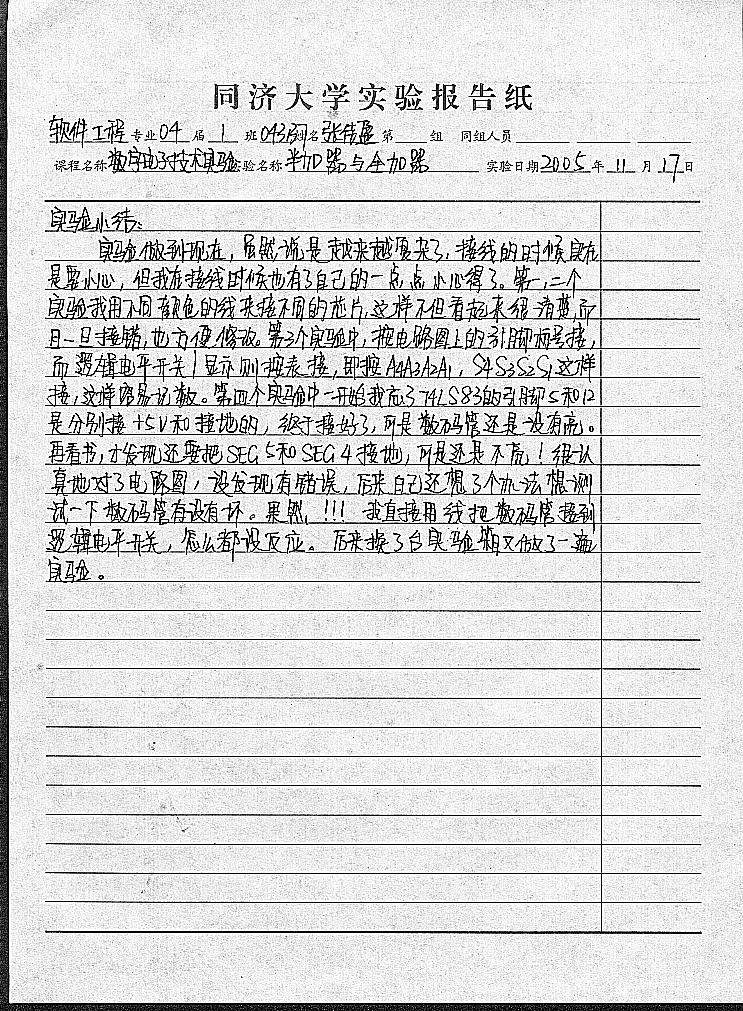 同济大学实验报告纸
软件工程 专业 04 届 1 班 姓名 第 组 同组人员
课程名称 数字电子技术实验 实验名称 半加器与全加器 实验日期 2005 年 11 月 17 日
实验小结:
实验做到现在,虽然说是越来越复杂了,接线的时候实在
是要小心,但我在接线时候也有了自己的一点点小心得了。第一,二个
实验我用不同颜色的线来接不同的芯片,这样不但看起来很清楚,而
且一旦接错,也方便修改。第三个实验中,按电路图上的引脚符号接,
而逻辑电平开关/显示则按表接,即按A4A3A2A1,S4S3S2S1这样
接,这样容易读数。第四个实验中一开始我忘了74LS83的引脚5和12
是分别接+5V和接地的,终于接好了,可是数码管还是没有亮。
再看书,才发现还要把SEG5和SEG4接地,可是还是不亮!很认
真地对了电路图,没发现有错误,后来自己还想了个办法想测
试一下数码管有没有坏。果然,!!!我直接用线把数码管接到
逻辑电平开关,怎么都没反应。后来换了台实验箱又做了一遍
实验。